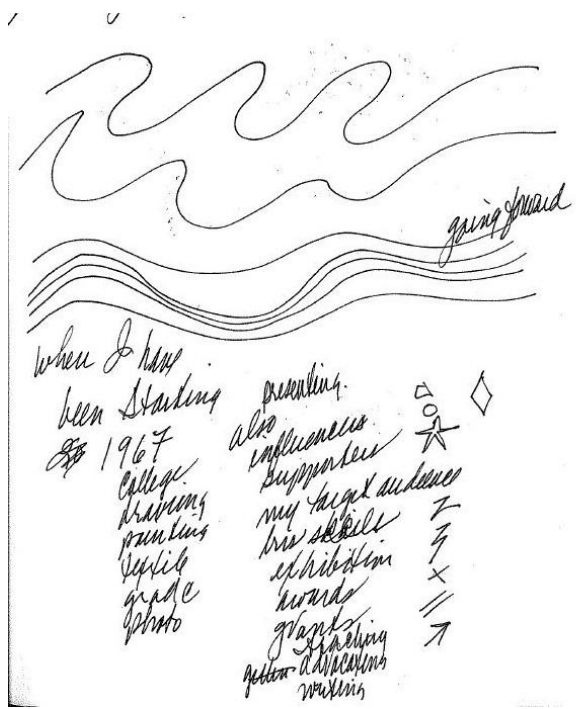 going forward
when I have
been Starting
1967
college
drawing
painting
textile
grade
photo
presenting.
also
influencers
supporters
my target audience
bus skills
exhibition
awards
grants
teaching
advocating
writing